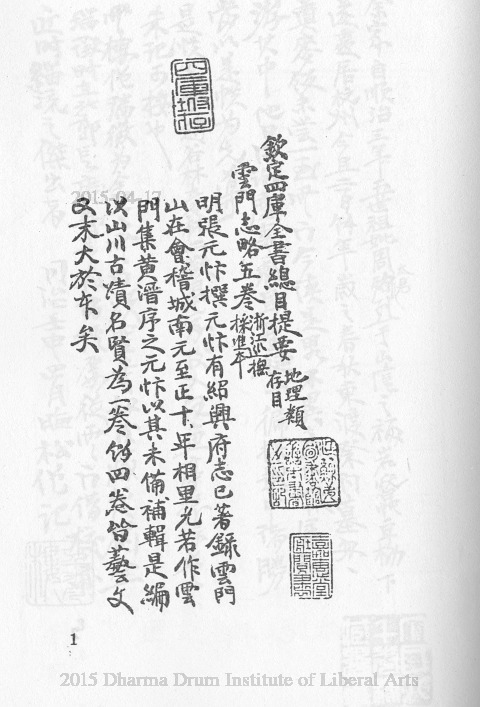 欽定四庫全書總目提要 地理類存目
雲門志略五卷 浙江巡撫採進本
明張元忭撰元忭有紹興府志已著錄雲門
山在會稽城南元至正十年相里允若作雲
門集黃溍序之元忭以其未備補輯是編
以山川古蹟名賢為一卷餘四卷皆藝文
又末大於本矣
2015-04-17
1
2015 Dharma Drum Institute of Liberal Arts